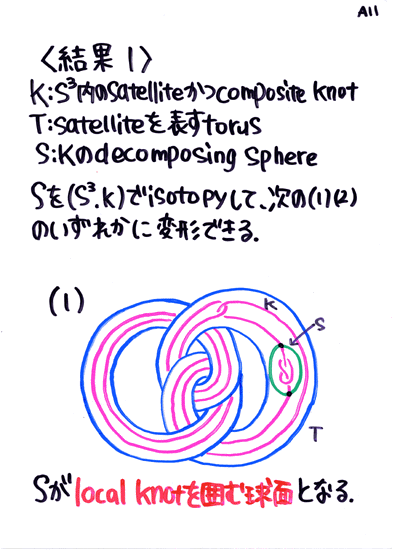 A11
〈結果1〉
K:S³内のsatelliteかつcomposite knot
T:satelliteを表すtorus
S:Kのdecomposing sphere
Sを(S³,K)でisotopyして、次の(1)(2)
のいずれかに変形できる.
(1)
K
S
T
Sがlocal knotを囲む球面となる.